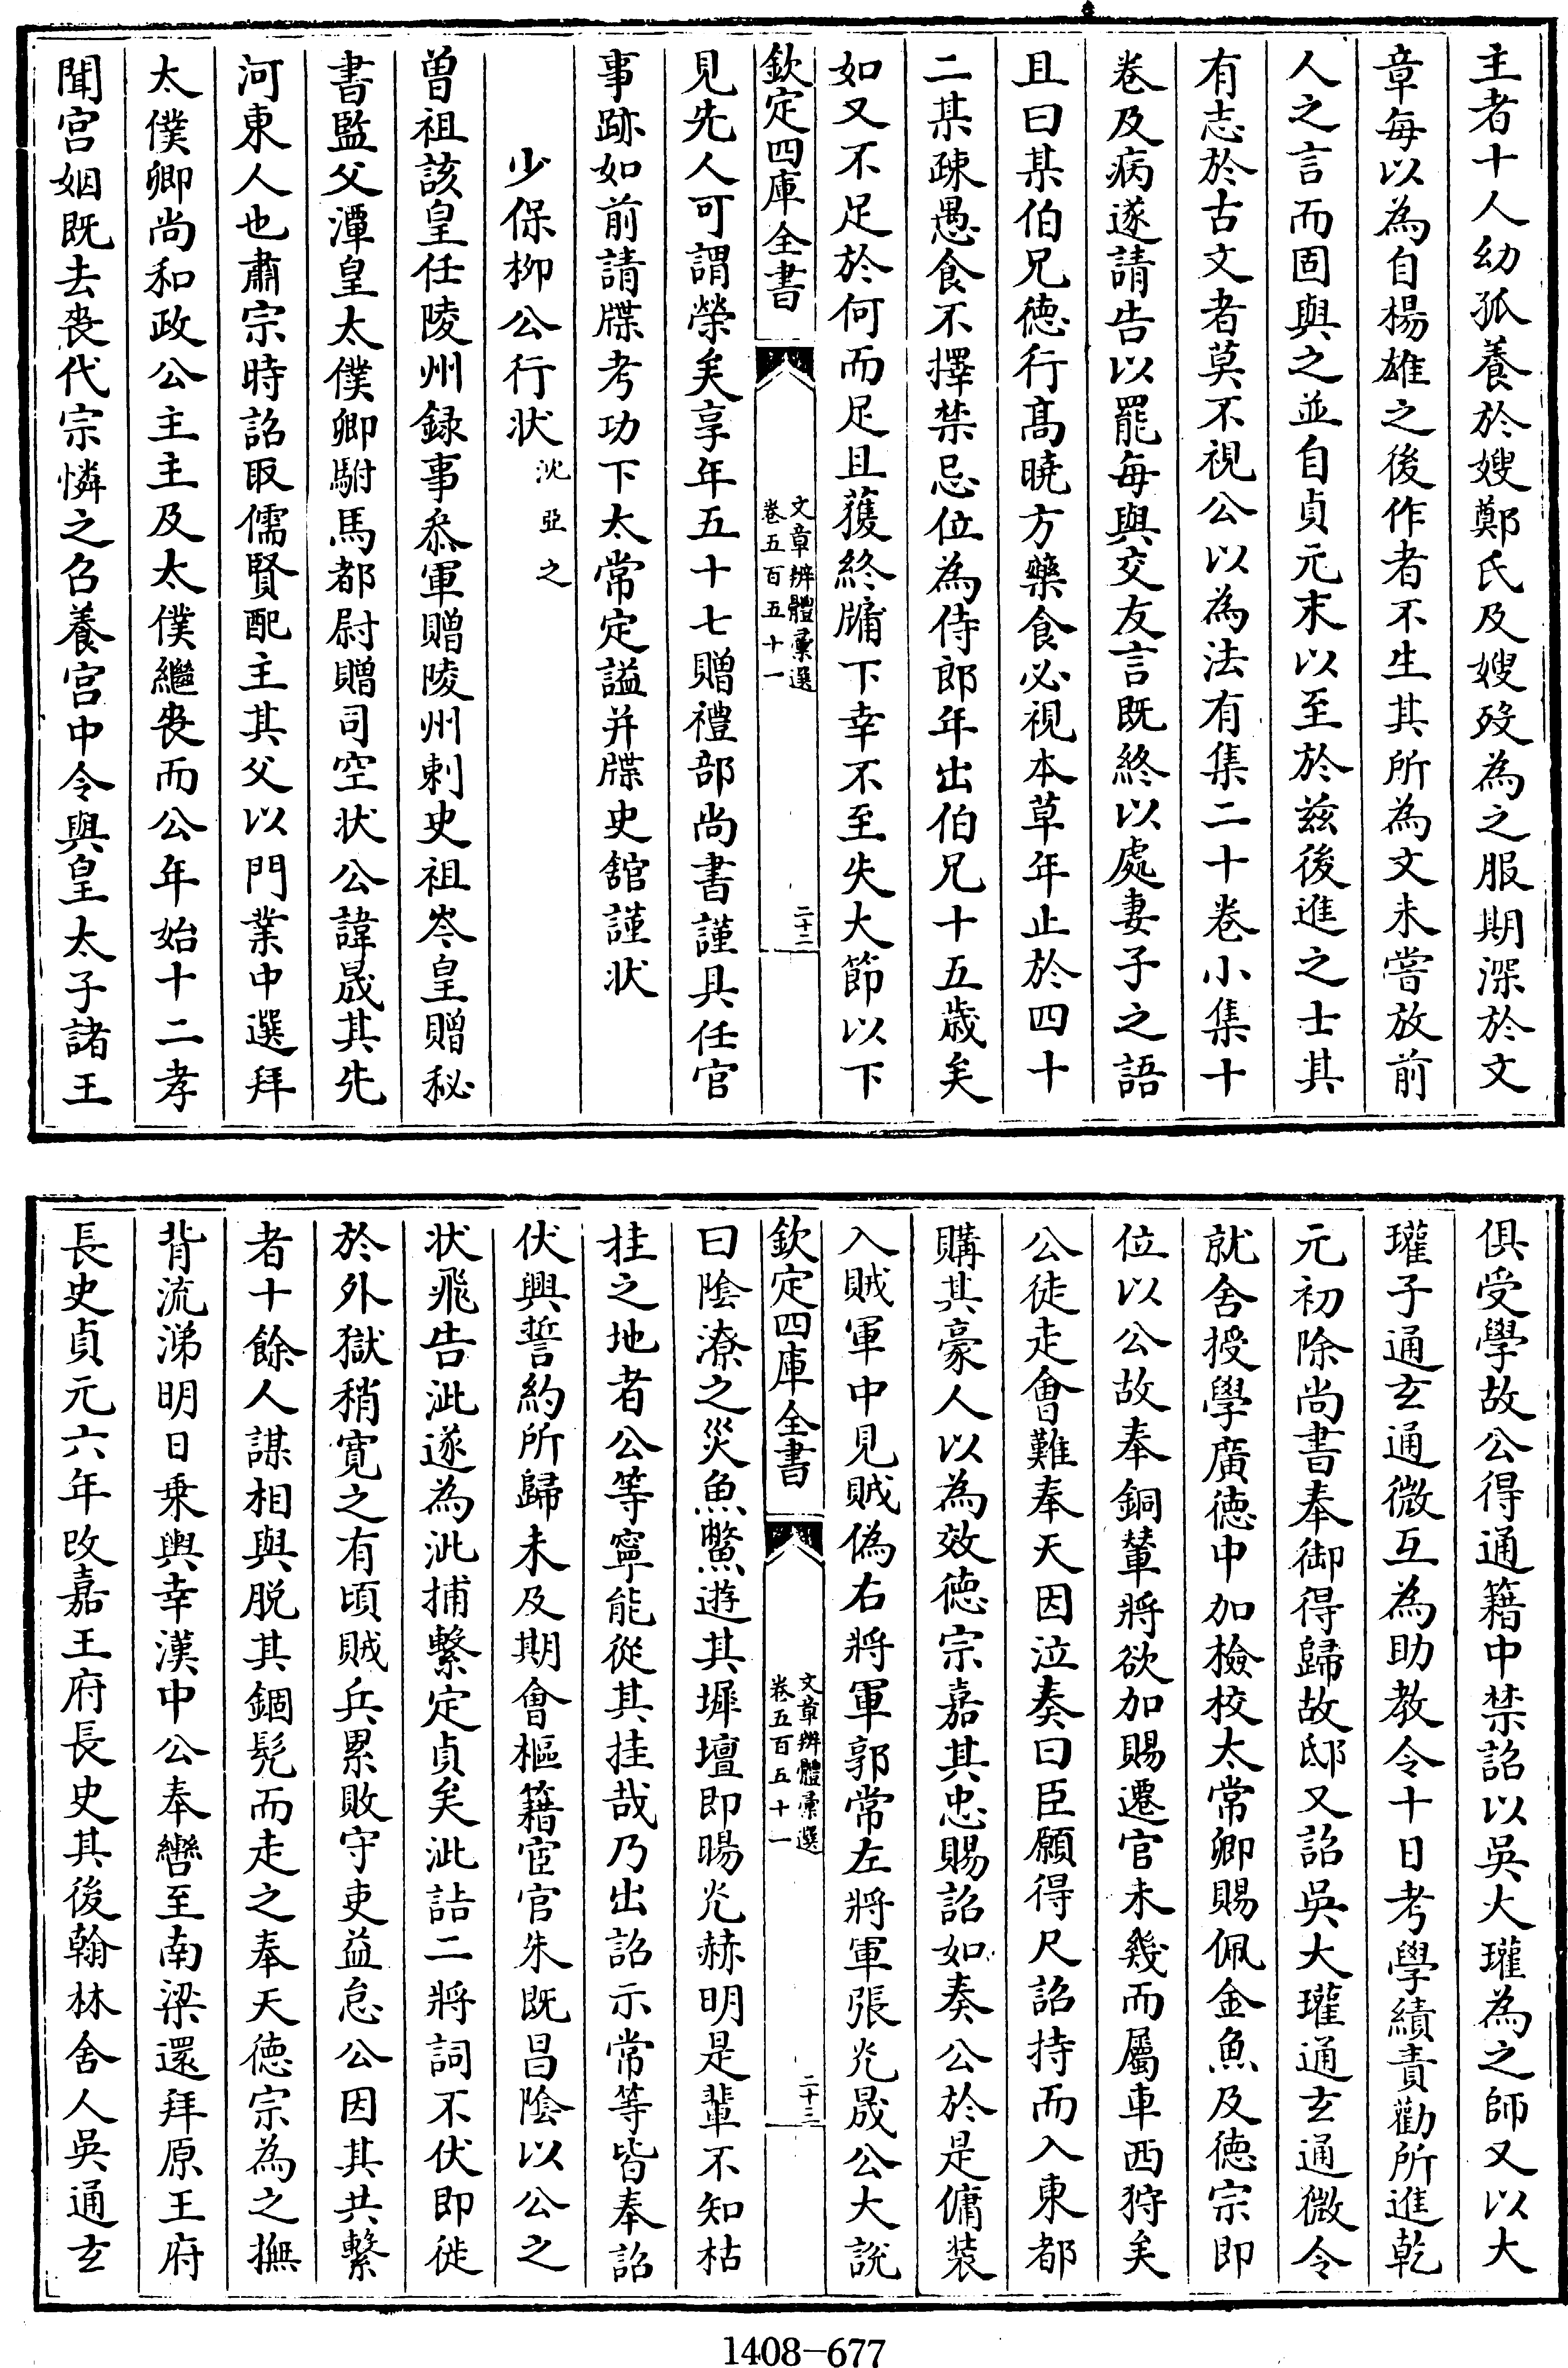 主者十人幼孤養於嫂鄭氏及嫂歿為之服期深於文
章每以為自楊雄之後作者不生其所為文未嘗放前
人之言而固與之並自貞元末以至於茲後進之士其
有志於古文者莫不視公以為法有集二十卷小集十
卷及病遂請告以罷每與交友言既終以處妻子之語
且曰某伯兄德行髙曉方藥食必視本草年止於四十
二某疎愚食不擇禁忌位為侍郎年出伯兄十五歳矣
如又不足於何而足且獲終牖下幸不至失大節以下
欽定四庫全書
文章辨體彙選
卷五百五十一
二十二
見先人可謂榮矣享年五十七贈禮部尚書謹具任官
事跡如前請牒考功下太常定謚并牒史舘謹狀
少保栁公行状沈亞之
曽祖該皇任陵州録事叅軍贈陵州刺史祖岑皇贈秘
書監父潭皇太僕卿駙馬都尉贈司空状公諱晟其先
河東人也肅宗時詔取儒賢配主其父以門業中選拜
太僕卿尚和政公主主及太僕繼喪而公年始十二孝
聞宫姻既去喪代宗憐之召養宫中令與皇太子諸王
俱受學故公得通籍中禁詔以吳大瓘為之師又以大
瓘子通玄通微互為助教令十日考學績責勸所進乾
元初除尚書奉御得歸故邸又詔吳大瓘通玄通微令
就舍授學廣德中加檢校太常卿賜佩金魚及徳宗即
位以公故奉銅輦將欲加賜遷官未幾而屬車西狩矣
公徒走會難奉天因泣奏曰臣願得尺詔持而入東都
購其豪人以為效徳宗嘉其忠賜詔如奏公於是傭装
入賊軍中見賊偽右將軍郭常左將軍張光晟公大説
欽定四庫全書
文章辨體彙選
卷五百五十一
二十三
曰陰潦之災魚鱉遊其墀壇即暘光赫明是輩不知枯
挂之地者公等寧能從其挂哉乃出詔示常等皆奉詔
伏興誓約所歸未及期會樞籍宦官朱既昌陰以公之
状飛告泚遂為泚捕繫定貞矣泚詰二將詞不伏即徙
於外獄稍寛之有頃賊兵累敗守吏益怠公因其共繫
者十餘人謀相與脱其錮髠而走之奉天徳宗為之撫
背流涕明日乗輿幸漢中公奉轡至南梁還拜原王府
長史貞元六年改嘉王府長史其後翰林舍人吳通玄
1408-677